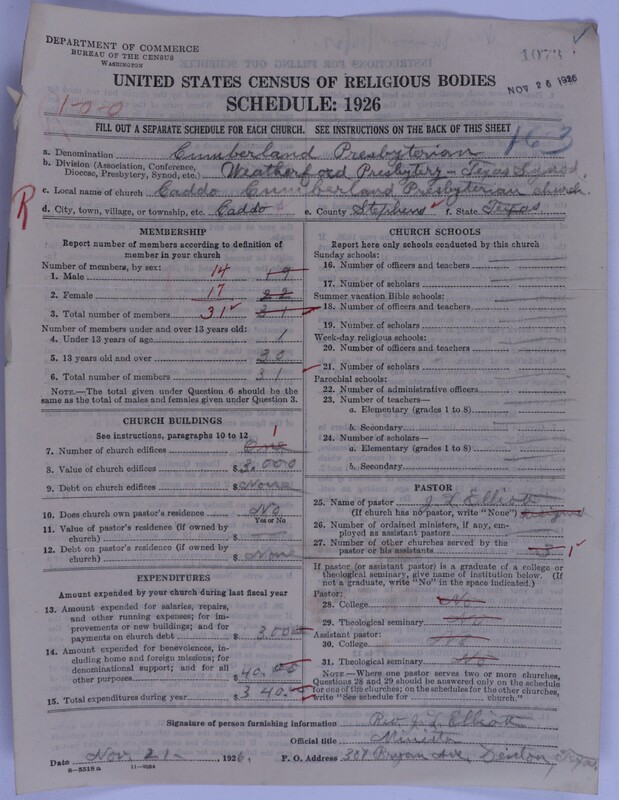 DEPARTMENT OF COMMERCE
BUREAU OF THE CENSUS
WASHINGTON
1073
NOV 26 1926
UNITED STATES CENSUS OF RELIGIOUS BODIES
SCHEDULE: 1926
1-0-0
FILL OUT A SEPARATE SCHEDULE FOR EACH CHURCH. SEE INSTRUCTIONS ON THE BACK OF THIS SHEET
163
a. Denomination Cumberland Presbyterian
b. Division (Association, Conference, Diocese, Presbytery, Synod, etc.) Weatherford Presbytery - Texas Synod.
c. Local name of church Caddo Cumberland Presbyterian Church.
R
d. City, town, village, or township, etc. Caddo e. County Stephens f. State Texas
MEMBERSHIP
Report number of members according to definition of
member in your church
Number of members, by sex:
1. Male 14 19
2. Female 17 22
3. Total number of members 31 31
Number of members under and over 13 years old:
4. Under 13 years of age 1
5. 13 years old and over 30
6. Total number of members 31
NOTE.—The total given under Question 6 should be the
same as the total of males and females given under Question 3.
CHURCH BUILDINGS
See instructions, paragraphs 10 to 12
7. Number of church edifices One 1
8. Value of church edifices $3,000
9. Debt on church edifices $None
10. Does church own pastor's residence No
Yes or No
11. Value of pastor's residence (if owned by
church) $
12. Debt on pastor's residence (if owned by
church) $None
EXPENDITURES
Amount expended by your church during last fiscal year
13. Amount expended for salaries, repairs,
and other running expenses; for im-
provements or new buildings; and for
payments on church debt $300
14. Amount expended for benevolences,
including home and foreign missions; for
denominational support; and for all
other purposes $40.00
15. Total expenditures during year $340.
CHURCH SCHOOLS
Report here only schools conducted by this church
Sunday schools:
16. Number of officers and teachers
17. Number of scholars
Summer vacation Bible schools:
18. Number of officers and teachers
19. Number of scholars
Week-day religious schools:
20. Number of officers and teachers
21. Number of scholars
Parochial schools:
22. Number of administrative officers
23. Number of teachers—
a. Elementary (grades 1 to 8)
b. Secondary
24. Number of scholars—
a. Elementary (grades 1 to 8)
b. Secondary
PASTOR
25. Name of pastor J L Elliott
(If church has no pastor, write "None")
26. Number of ordained ministers, if any, em-
ployed as assistant pastors
27. Number of other churches served by the
pastor or his assistants 3
If pastor (or assistant pastor) is a graduate of a college or
theological seminary, give name of institution below. (If
not a graduate, write "No" in the space indicated.)
Pastor:
28. College No
29. Theological seminary No
Assistant pastor:
30. College No
31. Theological seminary No
NOTE.—Where one pastor serves two or more churches,
Questions 28 and 29 should be answered only on the schedule
for one of the churches; on the schedules for the other churches,
write "See schedule for church."
Signature of person furnishing information Rev. J. L. Elliott
Official title Minister
Date Nov. 21- 1926. P. O. Address 308 Bryan Ave, Denton, Texas.
8—5518a 11—9224